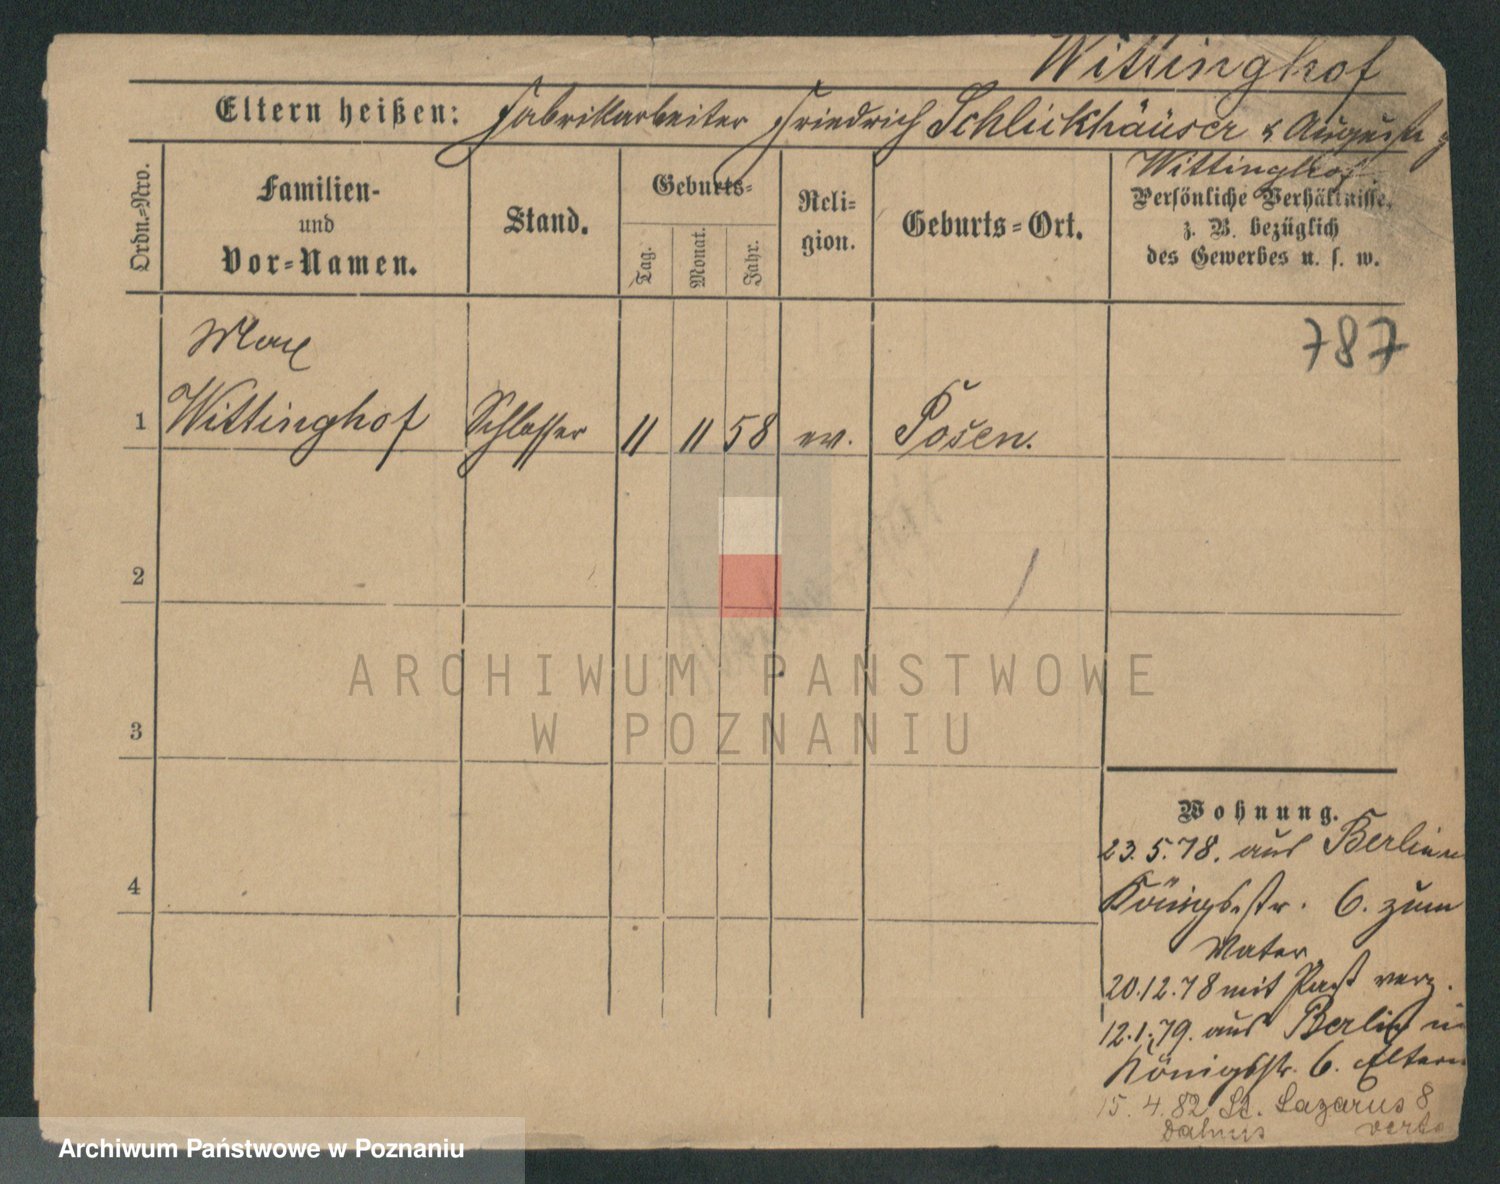 Wittinghof
Eltern heißen: Fabrikarbeiter Friedrich Schlickhäuser & Auguste
Wittinghof
Ordn.-Nro.
Familien-
und
Vor-Namen.
Stand.
Geburts-
Tag.
Monat.
Jahr.
Reli-
gion.
Geburts-Ort.
Persönliche Verhältnisse,
z. B. bezüglich
des Gewerbes u. s. w.
787
Max
1 Wittinghof Schlosser 11 11 58 ev. Posen.
2
3
4
ARCHIWUM PAŃSTWOWE
W POZNANIU
Wohnung.
23.5.78. aus Berlin
Königsstr. 6. zum
Vater.
20.12.78 mit Paß verz.
12.1.79. aus Berlin
Königsstr. 6. Eltern
15.4.82 St. Lazarus 8
verte
Archiwum Państwowe w Poznaniu